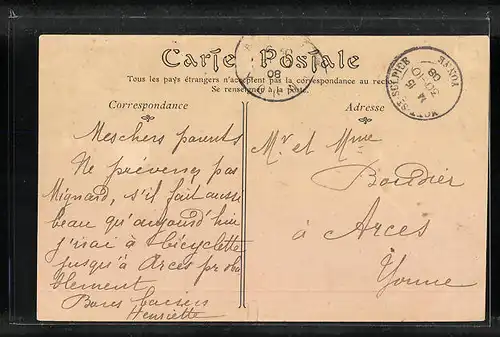 Carte Postale
Tous les pays étrangers n'acceptent pas la correspondance au recto
Se renseigner à la poste.
Correspondance
Adresse
Mes chers parents
Ne prévenez pas
Mignard, s'il fait aussi
beau qu'aujourd'hui
j'irai à bicyclette
jusqu'à Arces pr oba
blement
Bons baisers
Henriette
Mr et Mme
Boudier
à Arces
Yonne
VILLEVALLIER
YONNE
30-10
08